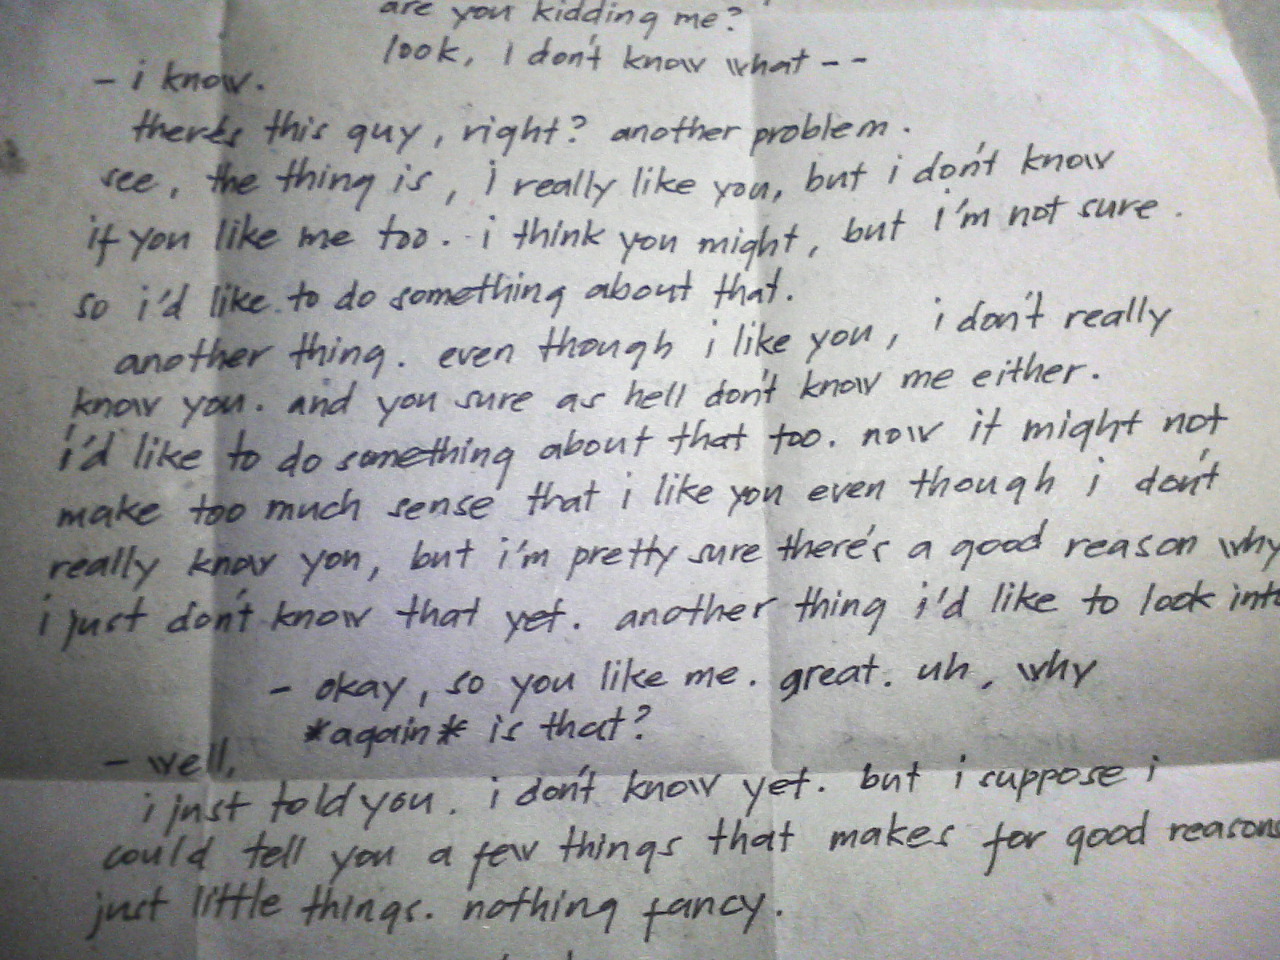 are you kidding me?
look, I don't know what --
- i know.
there's this guy, right? another problem.
see, the thing is, i really like you, but i don't know
if you like me too. i think you might, but i'm not sure.
so i'd like to do something about that.
another thing. even though i like you, i don't really
know you. and you sure as hell don't know me either.
i'd like to do something about that too. now it might not
make too much sense that i like you even though i don't
really know you, but i'm pretty sure there's a good reason why
i just don't know that yet. another thing i'd like to look into
- okay, so you like me. great. uh, why
*again* is that?
- well,
i just told you. i don't know yet. but i suppose i
could tell you a few things that makes for good reasons
just little things. nothing fancy.